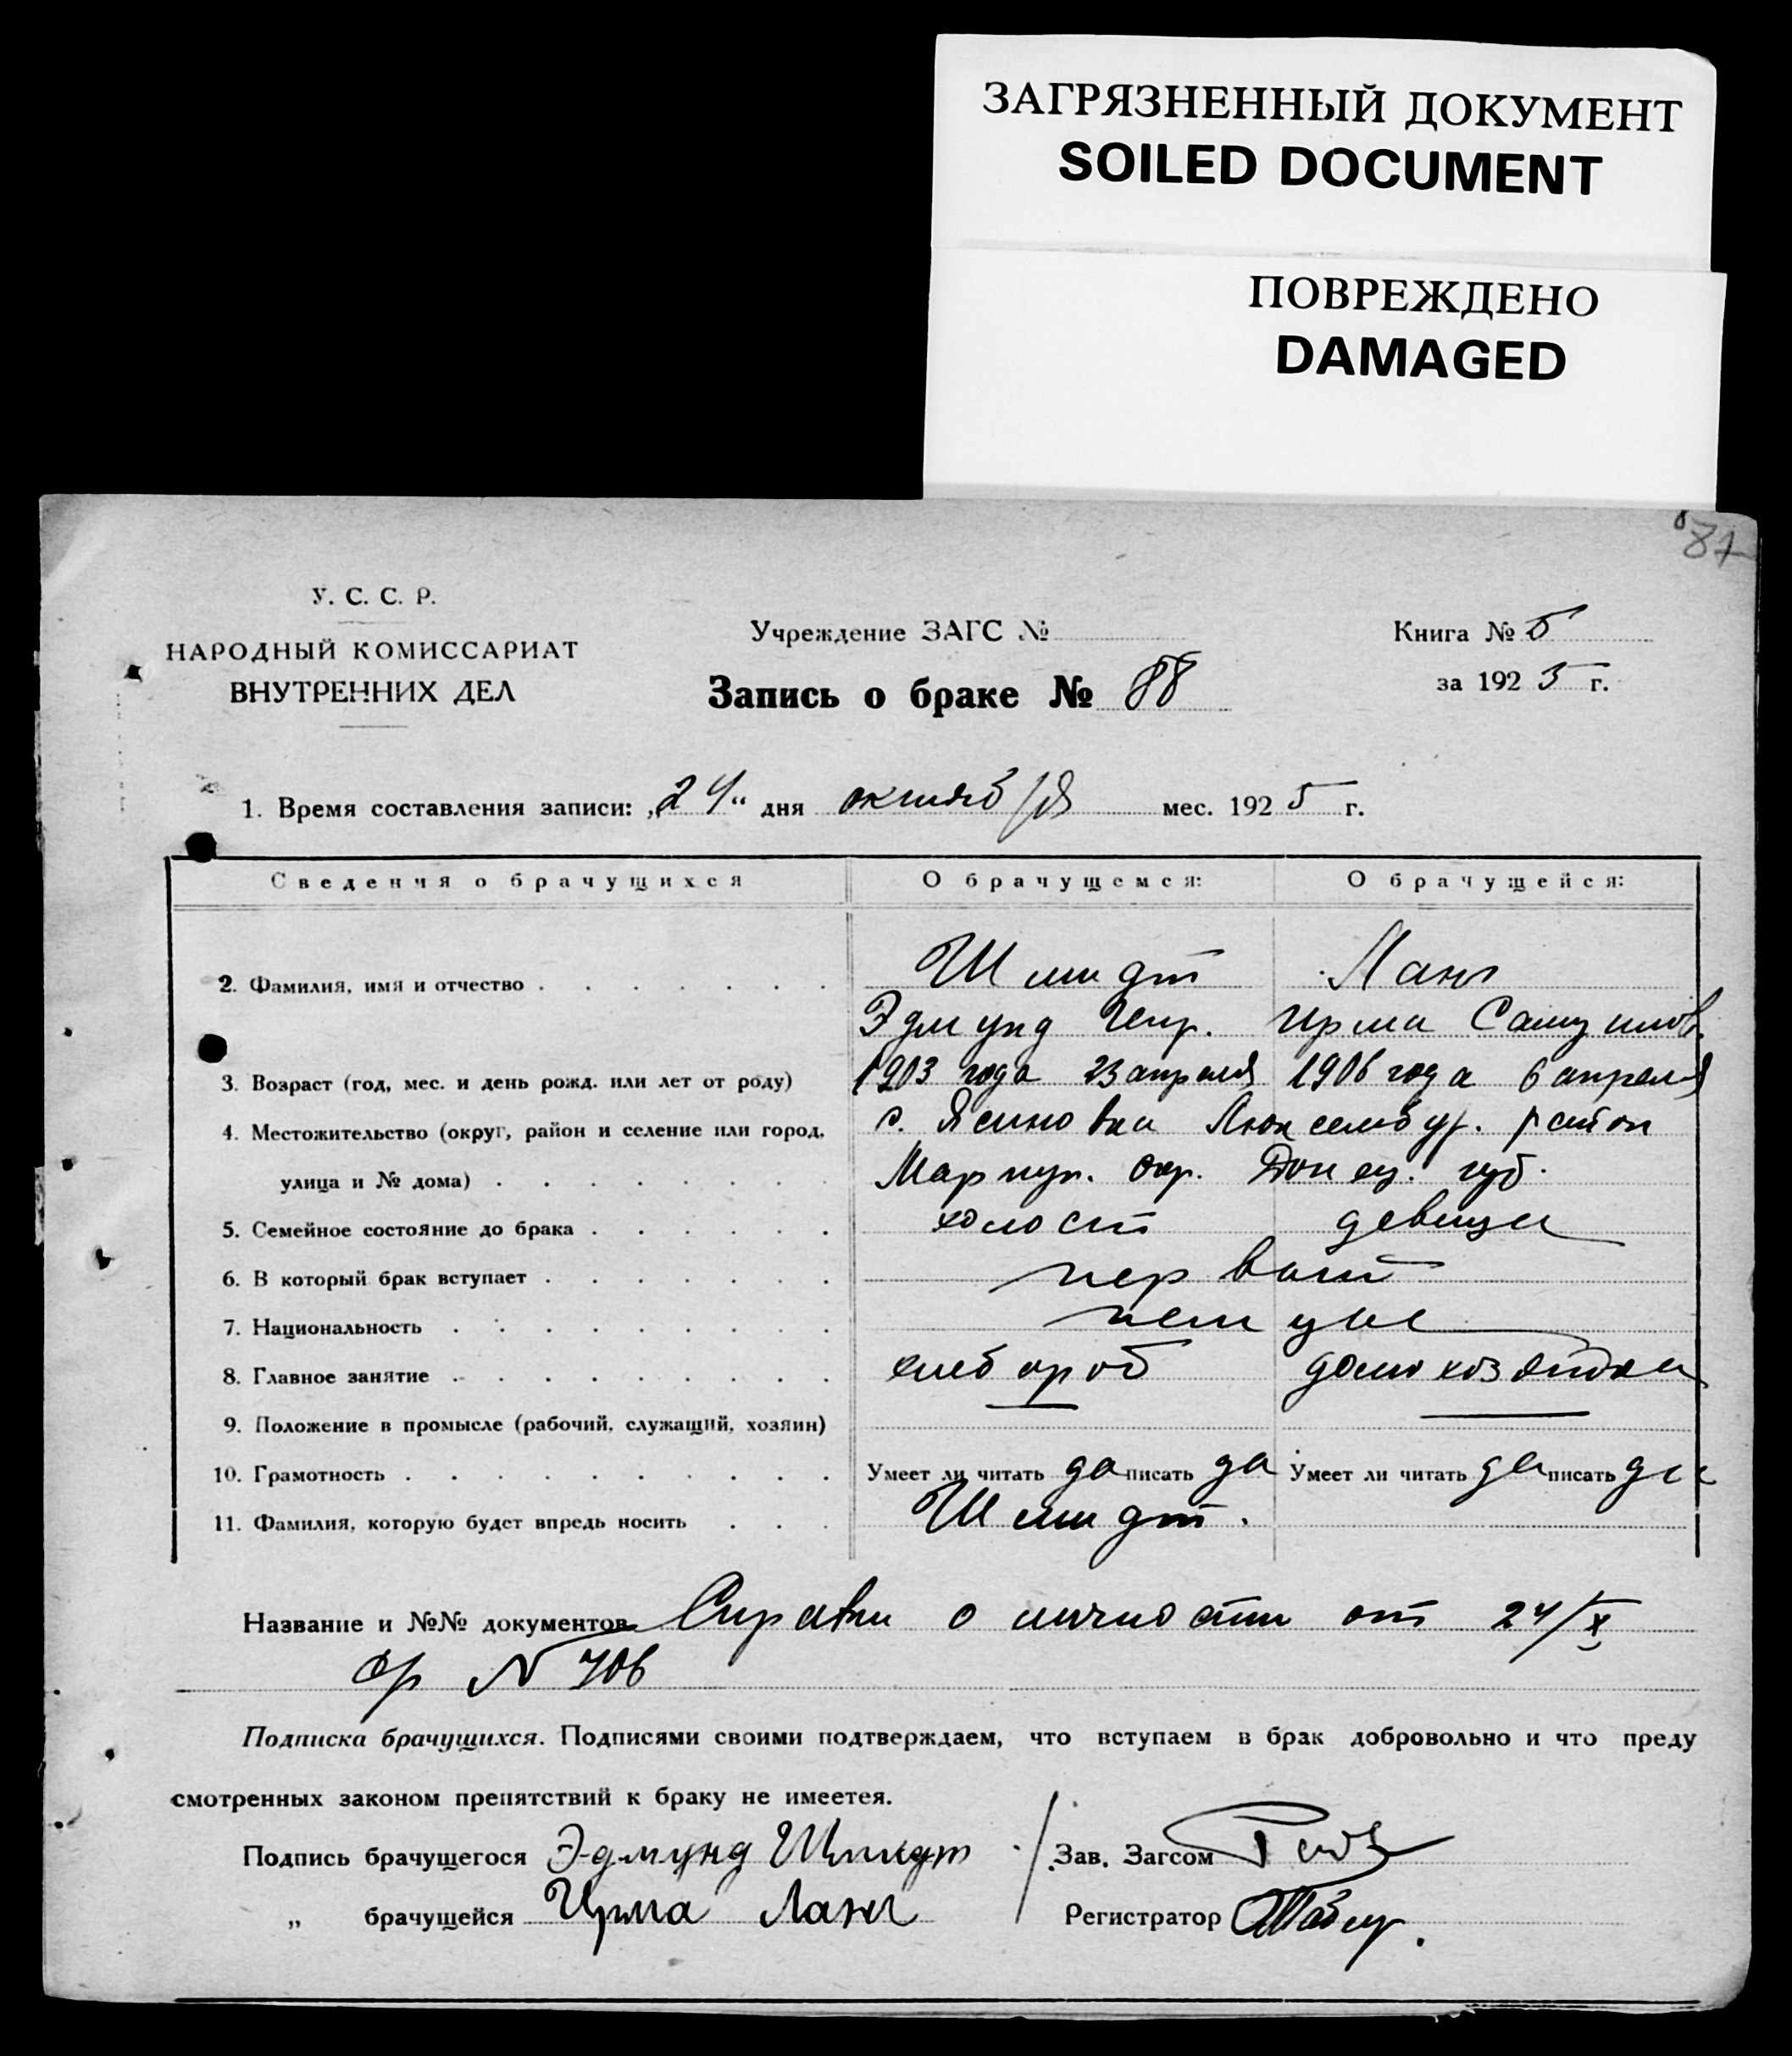 ЗАГРЯЗНЕННЫЙ ДОКУМЕНТ
SOILED DOCUMENT
ПОВРЕЖДЕНО
DAMAGED
87
У. С. С. Р.
НАРОДНЫЙ КОМИССАРИАТ
ВНУТРЕННИХ ДЕЛ
Учреждение ЗАГС №
Запись о браке № 88
Книга № 5
за 1925 г.
1. Время составления записи: „24“ дня октября мес. 1925 г.
Сведения о брачущихся О брачущемся: О брачущейся:
2. Фамилия, имя и отчество Шмидт Ланг
Эдмунд Ирма Самуилов.
3. Возраст (год, мес. и день рожд. или лет от роду) 1903 года 23 апреля 1906 года 6 апреля
4. Местожительство (округ, район и селение или город, с. Ясиновка Люксембур. район
улица и № дома) Мариуп. окр. Донец. губ.
5. Семейное состояние до брака холост девица
6. В который брак вступает первый
7. Национальность немцы
8. Главное занятие хлебороб домохозяйка
9. Положение в промысле (рабочий, служащий, хозяин)
10. Грамотность Умеет ли читать да писать да Умеет ли читать да писать да
11. Фамилия, которую будет впредь носить Шмидт.
Название и №№ документов Справки о личности от 24/X
№ 706
Подписка брачущихся. Подписями своими подтверждаем, что вступаем в брак добровольно и что преду
смотренных законом препятствий к браку не имеетея.
Подпись брачущегося Эдмунд Шмидт Зав. Загсом
„ брачущейся Ирма Ланг Регистратор